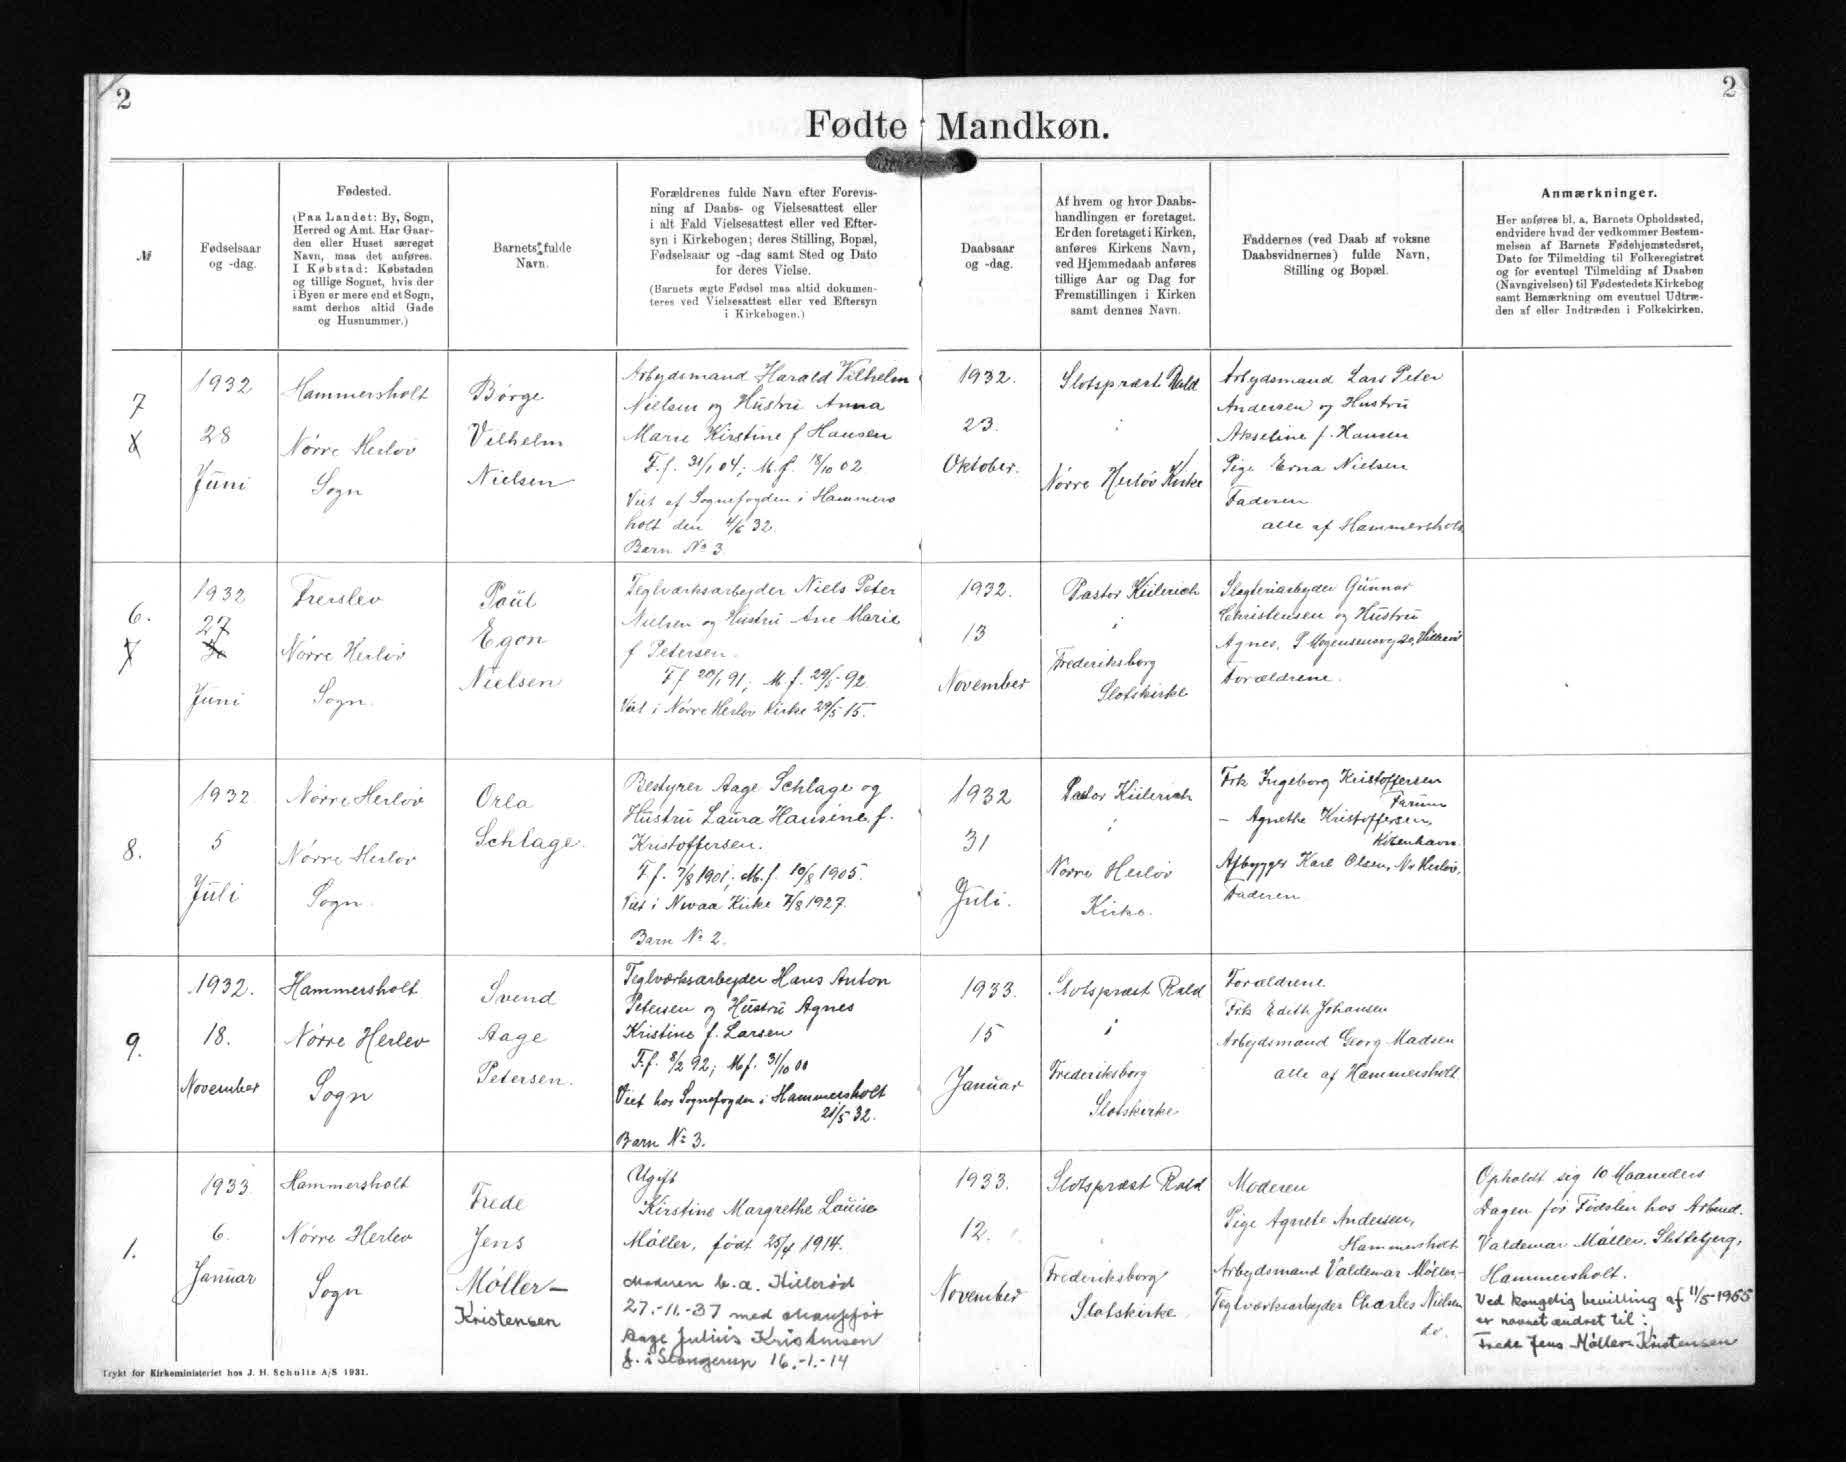 2
2
Fødte Mandkøn.
№
Fødselsaar
og -dag.
Fødested.
(Paa Landet: By, Sogn,
Herred og Amt. Har Gaar-
den eller Huset særeget
Navn, maa det anføres.
I Købstad: Købstaden
og tillige Sognet, hvis der
i Byen er mere end et Sogn,
samt derhos altid Gade
og Husnummer.)
Barnets fulde
Navn.
Forældrenes fulde Navn efter Forevis-
ning af Daabs- og Vielsesattest eller
i alt Fald Vielsesattest eller ved Efter-
syn i Kirkebogen; deres Stilling, Bopæl,
Fødselsaar og -dag samt Sted og Dato
for deres Vielse.
(Barnets ægte Fødsel maa altid dokumen-
teres ved Vielsesattest eller ved Eftersyn
i Kirkebogen.)
Daabsaar
og -dag.
Af hvem og hvor Daabs-
handlingen er foretaget.
Er den foretaget i Kirken,
anføres Kirkens Navn,
ved Hjemmedaab anføres
tillige Aar og Dag for
Fremstillingen i Kirken
samt dennes Navn.
Faddernes (ved Daab af voksne
Daabsvidnernes) fulde Navn,
Stilling og Bopæl.
Anmærkninger.
Her anføres bl. a. Barnets Opholdssted,
endvidere hvad der vedkommer Bestem-
melsen af Barnets Fødehjemstedsret,
Dato for Tilmelding til Folkeregistret
og for eventuel Tilmelding af Daaben
(Navngivelsen) til Fødestedets Kirkebog
samt Bemærkning om eventuel Udtræ-
den af eller Indtræden i Folkekirken.
7
1932
28
Juni
Hammersholt
Nørre Herløv
Sogn
Børge
Vilhelm
Nielsen
Arbejdsmand Harald Vilhelm
Nielsen og Hustru Anna
Marie Kirstine f Hansen
F.f. 31/1 04; M.f. 18/10 02
Viet af Sognefogden i Hammers
holt den 4/6 32.
Barn No 3
1932.
23.
Oktober.
Slotspræst Rald
i
Nørre Herløv Kirke
Arbejdsmand Lars Peter
Andersen og Hustru
Akseline f. Hansen
Pige Erna Nielsen
Faderen
alle af Hammersholt
6.
1932
27
Juni
Freerslev
Nørre Herløv
Sogn.
Poul
Egon
Nielsen
Teglværksarbejder Niels Peter
Nielsen og Hustru Ane Marie
f Petersen.
F f 20/1 91; M f. 29/5 92
Viet i Nørre Herløv Kirke 29/5 15.
1932.
13
November
Pastor Kiilerich
i
Frederiksborg
Slotskirke
Slagteriarbejder Gunnar
Christensen og Hustru
Agnes, P Mogensensvej 20, Hillerød
Forældrene.
8.
1932
5
Juli
Nørre Herløv
Nørre Herløv
Sogn.
Orla
Schlage.
Bestyrer Aage Schlage og
Hustru Laura Hansine f.
Kristoffersen.
F. f. 7/8 1901; M.f. 10/8 1905.
Viet i Nivaa Kirke 7/8 1927.
Barn No 2.
1932
31
Juli.
Pastor Kiilerich
i
Nørre Herløv
Kirke.
Frk Ingeborg Kristoffersen
Farum
- Agnethe Kristoffersen,
København
Afbygger Karl Olsen, Nr Herløv,
Faderen
9.
1932.
18.
November
Hammersholt
Nørre Herlev
Sogn
Svend
Aage
Petersen.
Teglværksarbejder Hans Anton
Petersen og Hustru Agnes
Kristine f. Larsen
F.f. 8/2 92; M.f. 31/10 00
Viet hos Sognefogden i Hammersholt
21/5 32.
Barn No 3.
1933.
15
Januar
Slotspræst Rald
i
Frederiksborg
Slotskirke
Forældrene
Frk Edith Johansen
Arbejdsmand Georg Madsen
alle af Hammersholt
1.
1933
6.
Januar
Hammersholt
Nørre Herlev
Sogn
Frede
Jens
Møller-
Kristensen
Ugift
Kirstine Margrethe Louise
Møller, født 25/4 1914.
Moderen b.a. Hillerød
27.-11.-37 med chauffør
Aage Julius Kristensen
f. i Slangerup 16.-1.-14
1933.
12.
November
Slotspræst Rald
Frederiksborg
Slotskirke
Moderen
Pige Agnete Andersen,
Hammersholt
Arbejdsmand Valdemar Møller-
Teglværksarbejder Charles Nielsen
do.
Opholdt sig 10 Maaneders
Dagen før Fødslen hos Arbmd.
Valdemar Møller, Slettebjerg,
Hammersholt.
Ved kongelig bevilling af 11/5-1965
er navnet ændret til:
Frede Jens Møller Kristensen
Trykt for Kirkeministeriet hos J. H. Schultz A/S 1931.